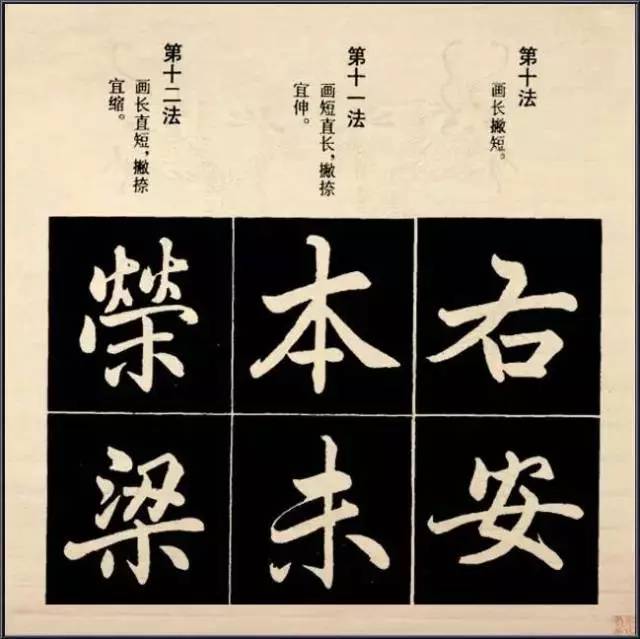 第十法
画长撇短。
第十一法
画短直长，撇捺
宜伸。
第十二法
画长直短，撇捺
宜缩。
右安
本未
榮梁